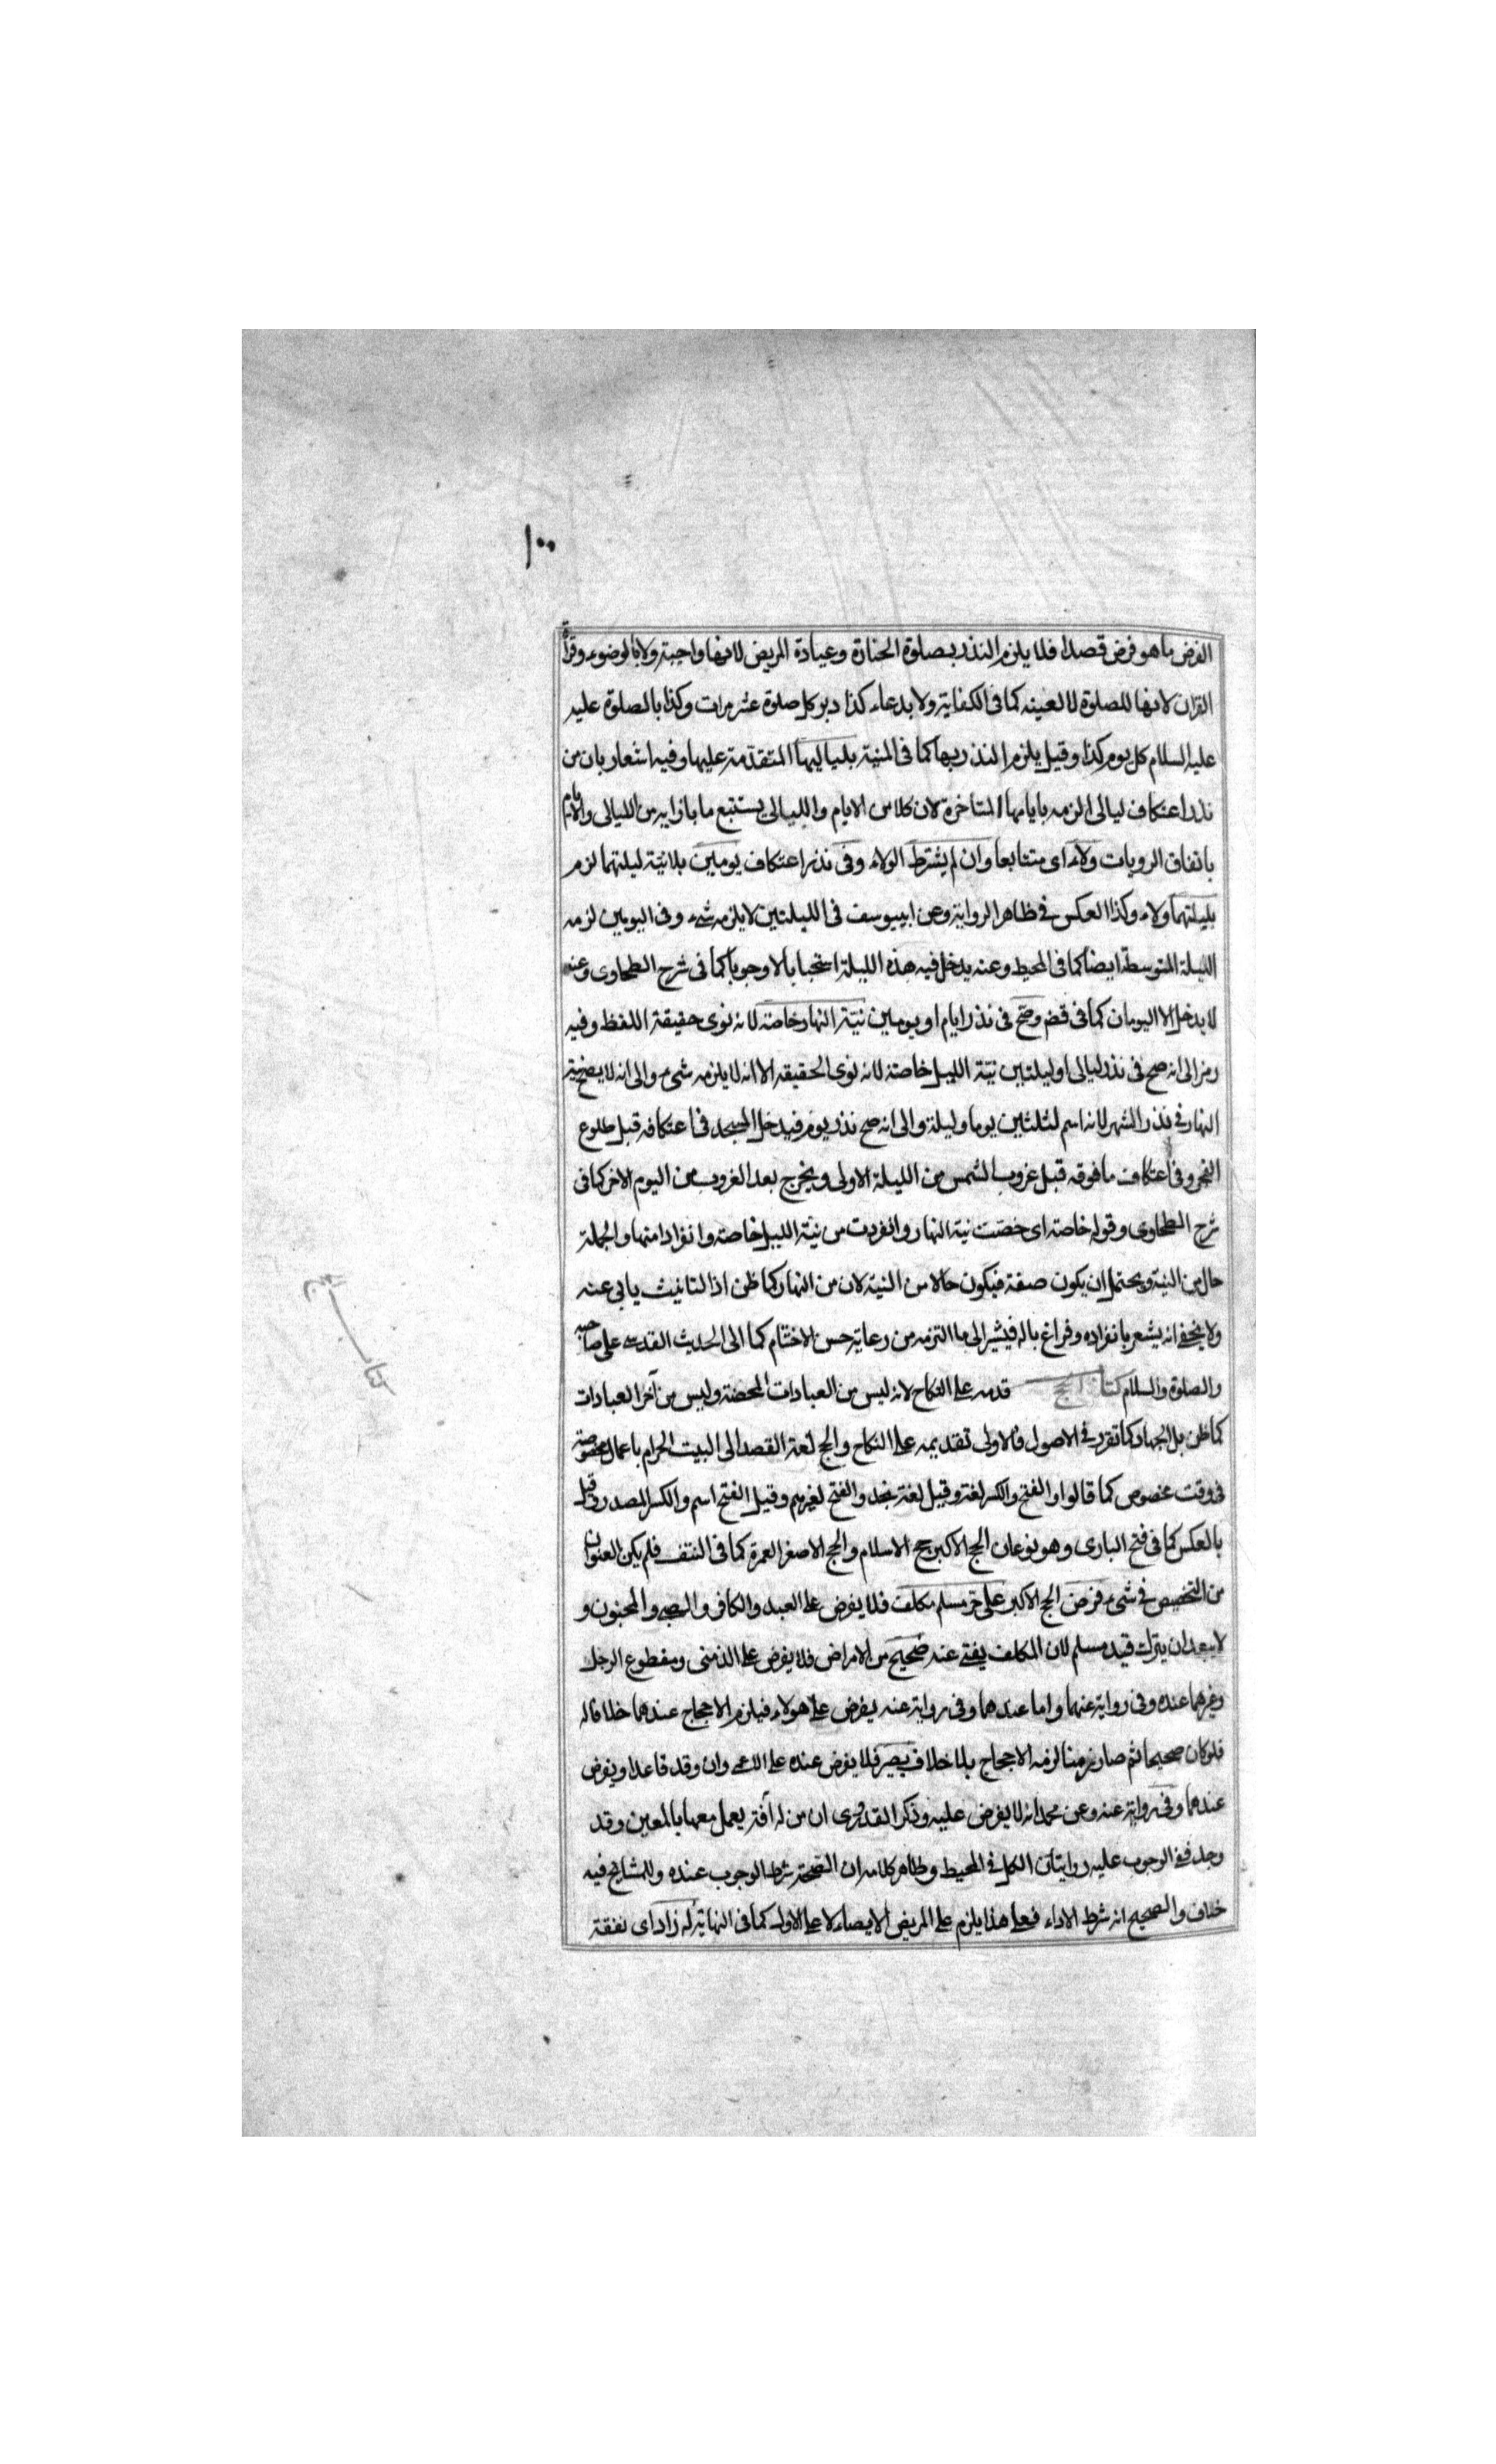 ١٠٠
الفرض ما هو فرض قصدا فلا يلزم النذر بصلوة الجنازة وعيادة المريض لانها واجبة ولا بالوضوء وقراة
القران لانها للصلوة لا لعينه كما فى الكفاية ولا بدعاء كذا دبر كل صلوة عشر مرات وكذا بالصلوة عليه
عليه السلام كل يوم كذا وقيل يلزم النذر بها كما فى المنية بلياليها المتقدمة عليها وفيه اشعار بان من
نذر اعتكاف ليالى الزمه بايامها المتاخرة لان كلا من الايام والليالى يستتبع ما بازايه من الليالى والايام
باتفاق الرويات ولاء اى متتابعا وان لم يشترط الولاء وفى نذر اعتكاف يومين بلا نية ليلتهما لزم
بليلتهما ولاء وكذا العكس فى ظاهر الرواية وعن ابييوسف فى الليلتين لا يلزمه شىء وفى اليومين لزمه
الليلة المتوسطة ايضا كما فى المحيط وعنه يدخل فيه هذه الليلة استحبابا لا وجوبا كما فى شرح الطحاوى وعنه
لا يدخل الا اليومان كما فى قضم وصح فى نذر ايام او يومين نية النهار خاصة لانه نوى حقيقة اللفظ وفيه
رمز الى انه صح فى نذر ليالى او ليلتين نية الليل خاصة لانه نوى الحقيقه الا انه لا يلزمه شىء والى انه لا يصح نية
النهار فى نذر الشهر لانه اسم لثلثين يوما وليلة والى انه صح نذر يوم فيدخل المسجد فى اعتكافه قبل طلوع
الفجر وفى اعتكاف ما فوقه قبل غروب الشمس من الليلة الاولى ويخرج بعد الغروب من اليوم الاخر كما فى
شرح الطحاوى وقوله خاصة اى خصت نية النهار وانفردت من نية الليل خاصة وانفرادا منها والجملة
حال من النية ويحتمل ان يكون صفة فيكون حالا من النية لان من النهار كما ظن اذ التانيث يابى عنه
ولا يخفى انه يشعر بانفراده وفراغ باله فيشير الى ما التزمه من رعاية حسن الاختتام كما الى الحديث القدسى على صاحبه
والصلوة والسلام كتاب الحج قدمه على النكاح لانه ليس من العبادات المحضة وليس من آخر العبادات
كما ظن بل الجهاد كما تقرر فى الاصول فالاولى تقديمه على النكاح والحج لغة القصد الى البيت الحرام باعمال مخصوصة
فى وقت مخصوص كما قالوا والفتح والكسر لغة وقيل لغة نجد والفتح لغيرهم وقيل الفتح اسم والكسر المصدر وقيل
بالعكس كما فى فتح البارى وهو نوعان الحج الاكبر حج الاسلام والحج الاصغر العمرة كما فى النتف فلم يكن العنوان
من التخصيص فى شىء فرض الحج الاكبر على حر مسلم مكلف فلا يفرض على العبد والكافر والصبى والمجنون و
لا يبعد ان يترك قيد مسلم لان المكلف يفتى عنه صحيح من الامراض فلا يفرض على الذمنى ومقطوع الرجل
وغيرهما عنده وفى رواية عنهما واما عندهما وفى رواية عنه يفرض على هولاء فيلزم الاحجاج عندهما خلافا له
فلو كان صحيحا ثم صار زمنا لزمه الاحجاج بلا خلاف بصير فلا يفرض عنده على الاعمى وان وقد قاعدا ويفرض
عندهما وفى رواية عنه وعن محمد انه لا يفرض عليه وذكر القدورى ان من له آفة يعمل معها بالمعين وقد
وجد ففى الوجوب عليه روايتان الكل فى المحيط وظاهر كلامه ان الصحة شرط الوجوب عنده وللمشايخ فيه
خلاف والصحيح انه شرط الاداء فعلى هذا يلزم على المريض الايصاء لا على الاول كما فى النهاية له زاد اى نفقة